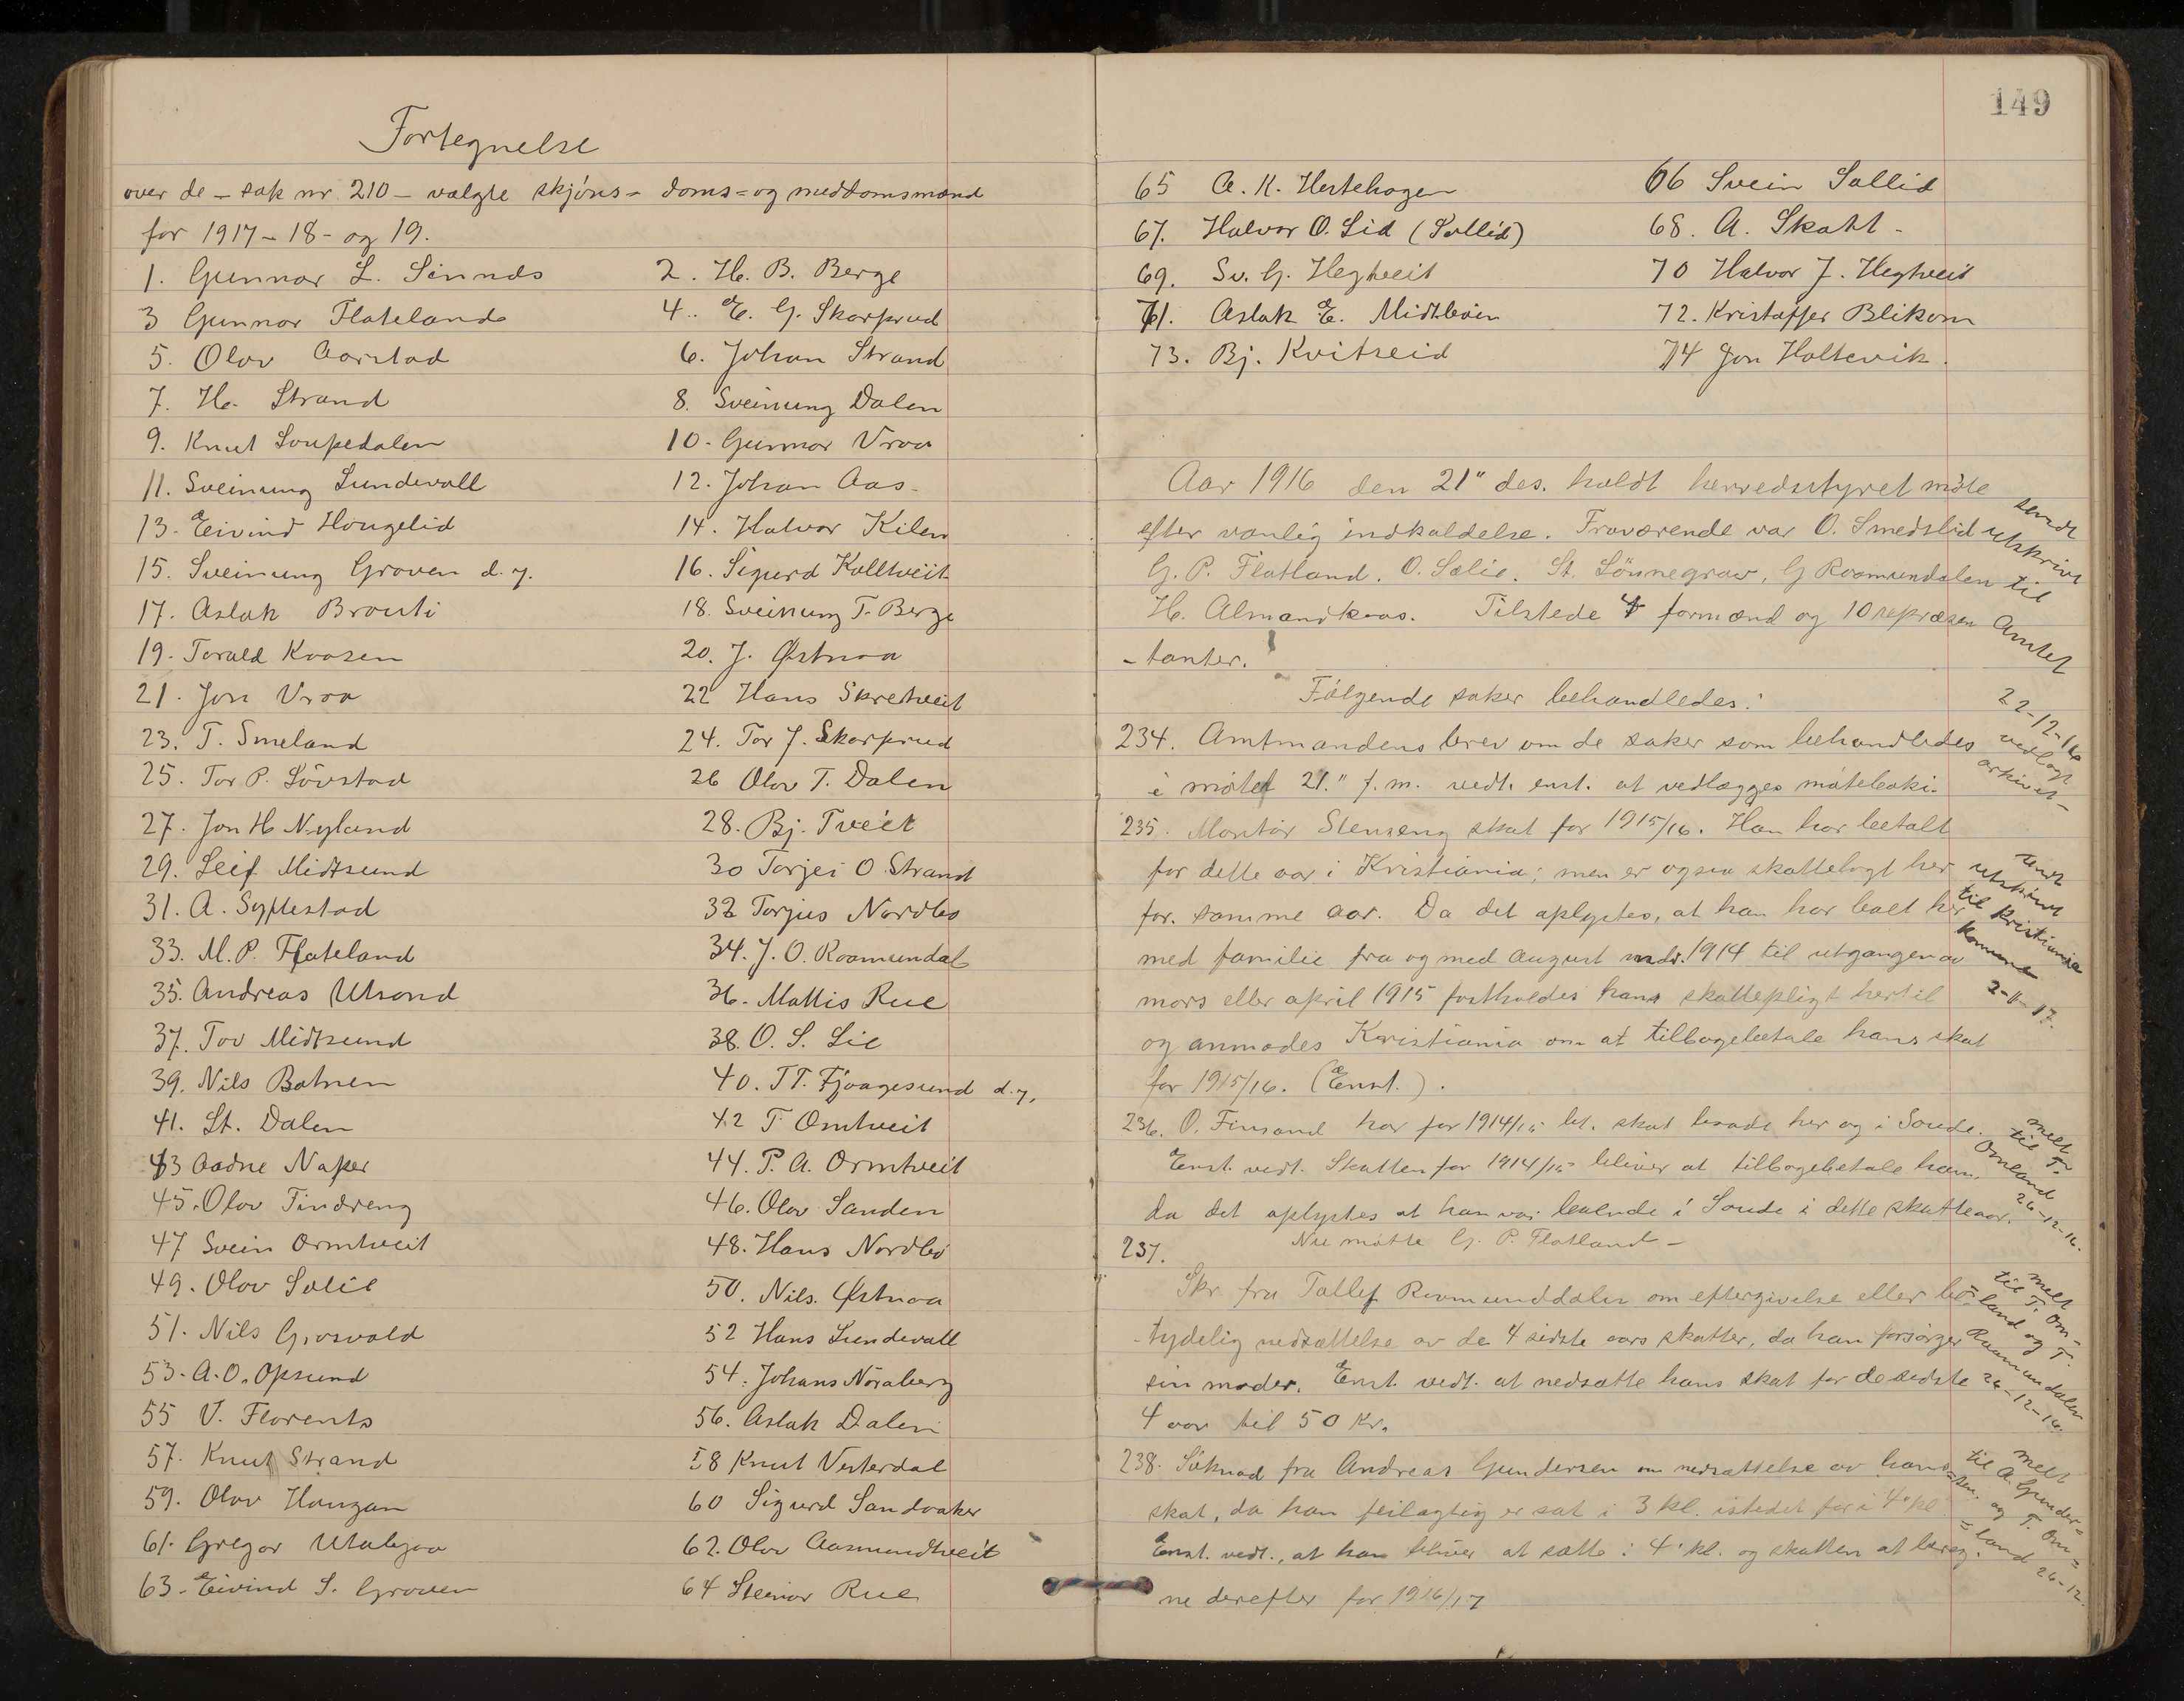 Fortegnelse
over de - sak nr. 210 - valgte skjöns- doms= og meddomsmænd
for 1917 - 18 - og 19.
1. Gunnar L. Sinnds 2. H. B. Berge
3 Gunnar Flateland 4. E. G. Skarprud
5. Olav Aarstad 6. Johan Strand
7. H. Strand 8. Sveinung Dalen
9. Knut Loupedalen 10. Gunnar Vraa
11. Sveinung Lundevall 12. Johan Aas.
13. Eivind Haugelid 14. Halvor Kilen
15. Sveinung Groven d. y. 16. Sigurd Kolltveit
17. Aslak Brauti 18. Sveinung T. Berge
19. Torald Kaasen 20. J. Østnaa
21. Jon Vraa 22 Hans Skretveit
23. T. Smeland 24. Tor J. Skarprud
25. Tor P. Lövstad 26 Olav T. Dalen
27. Jon H Nyland 28. Bj. Tveit
29. Leif Midtsund 30 Torjei O. Strand
31. A. Syftestad 32 Torjus Nordbö
33. M. P. Flateland 34. J. O. Raamundal
35. Andreas Utsond 36. Mattis Rue
37. Tov Midtsund 38. O. S. Lie
39. Nils Botnen 40. T T. Fjaagesund d. y.
41. St. Dalen 42 T. Omtveit
43 Aadne Naper 44. P. A. Ormtveit
45. Olav Tindreng 46. Olav Sanden
47 Svein Ormtveit 48. Hans Nordbö
49. Olav Solie 50. Nils. Østnaa
51. Nils Grosvold 52 Hans Lundevall
53. A. O. Opsund 54. Johans Noraberg
55 V. Florents 56. Aslak Dalen
57. Knut Strand 58 Knut Vesterdal
59. Olav Haugan 60 Sigurd Sandvaker
61. Gregar Utabjaa 62. Olav Aasmundtveit
63. Eivind S. Groven 64 Steinar Rue
149
65 A. K. Hestehagen 66 Svein Sollid
67. Halvor O. Lid (Sollid) 68. A. Skatt -
69. Sv. G. Hegtveit 70 Halvor J. Hegtveit
71. Aslak E. Midtböen 72. Kristaffer Blikom
73. Bj. Kvitseid 74 Jon Holtevik.
Aar 1916 den 21" des. holdt herredsstyret möte
efter vanlig indkaldelse. Fraværende var O. Smedslid
G. P. Flatland. O. Solie. St. Lönnegrav, G Raamundalen
H. Almandkaas. Tilstede 4 formænd og 10 repræsen
-tanter.
sendt
utskrivt
til
Amtet
22-12-16
Følgende saker behandledes:
234. Amtmandens brev om de saker som behandledes
i mötet 21." f. m. vedt. enst. at vedlægges möteboki.
vedlagt
arkivet -
235. Montör Stenseng skat for 1915/16. Han har betalt
for dette aar i Kristiania; men er ogsaa skattelagt her
for. samme aar. Da det oplystes, at han har boet her
med familie fra og med August mdr. 1914 til utgangen av
mars eller april 1915 fastholdes hans skattepligt hertil
og anmodes Kristiania om at tilbagebetale hans skat
for 1915/16. (Enst.).
sendt
utskrivt
til Kristiania
komune
2-11-17.
236. O. Finsand har for 1914/15 bet. skat baade her og i Soude.
Enst. vedt. Skatten for 1914/15 bliver at tilbagebetale ham,
da det oplystes at han var boende i Soude i dette skatteaar.
melt
til T.
Omland
26-12-16.
Nu mötte G. P. Flatland -
237.
Skr. fra Tallef Raamunddalen om eftergivelse eller be-
-tydelig nedsættelse av de 4 sidste aars skatter, da han forsörger
sin moder. Enst. vedt. at nedsætte hans skat for de sidste
4 aar til 50 kr.
melt
til T. Om-
land og T.
Raamundalen
26-12-16.
238. Söknad fra Andreas Gundersen om nedsættelse av hans
skat, da han feilagtig er sat i 3 kl. istedet for i 4' kl.
Enst. vedt., at han bliver at sætte i 4' kl. og skatten at bereg-
ne derefter for 1916/17
melt
til A. Gunder=
=sen. og T. Om=
=land 26-12.